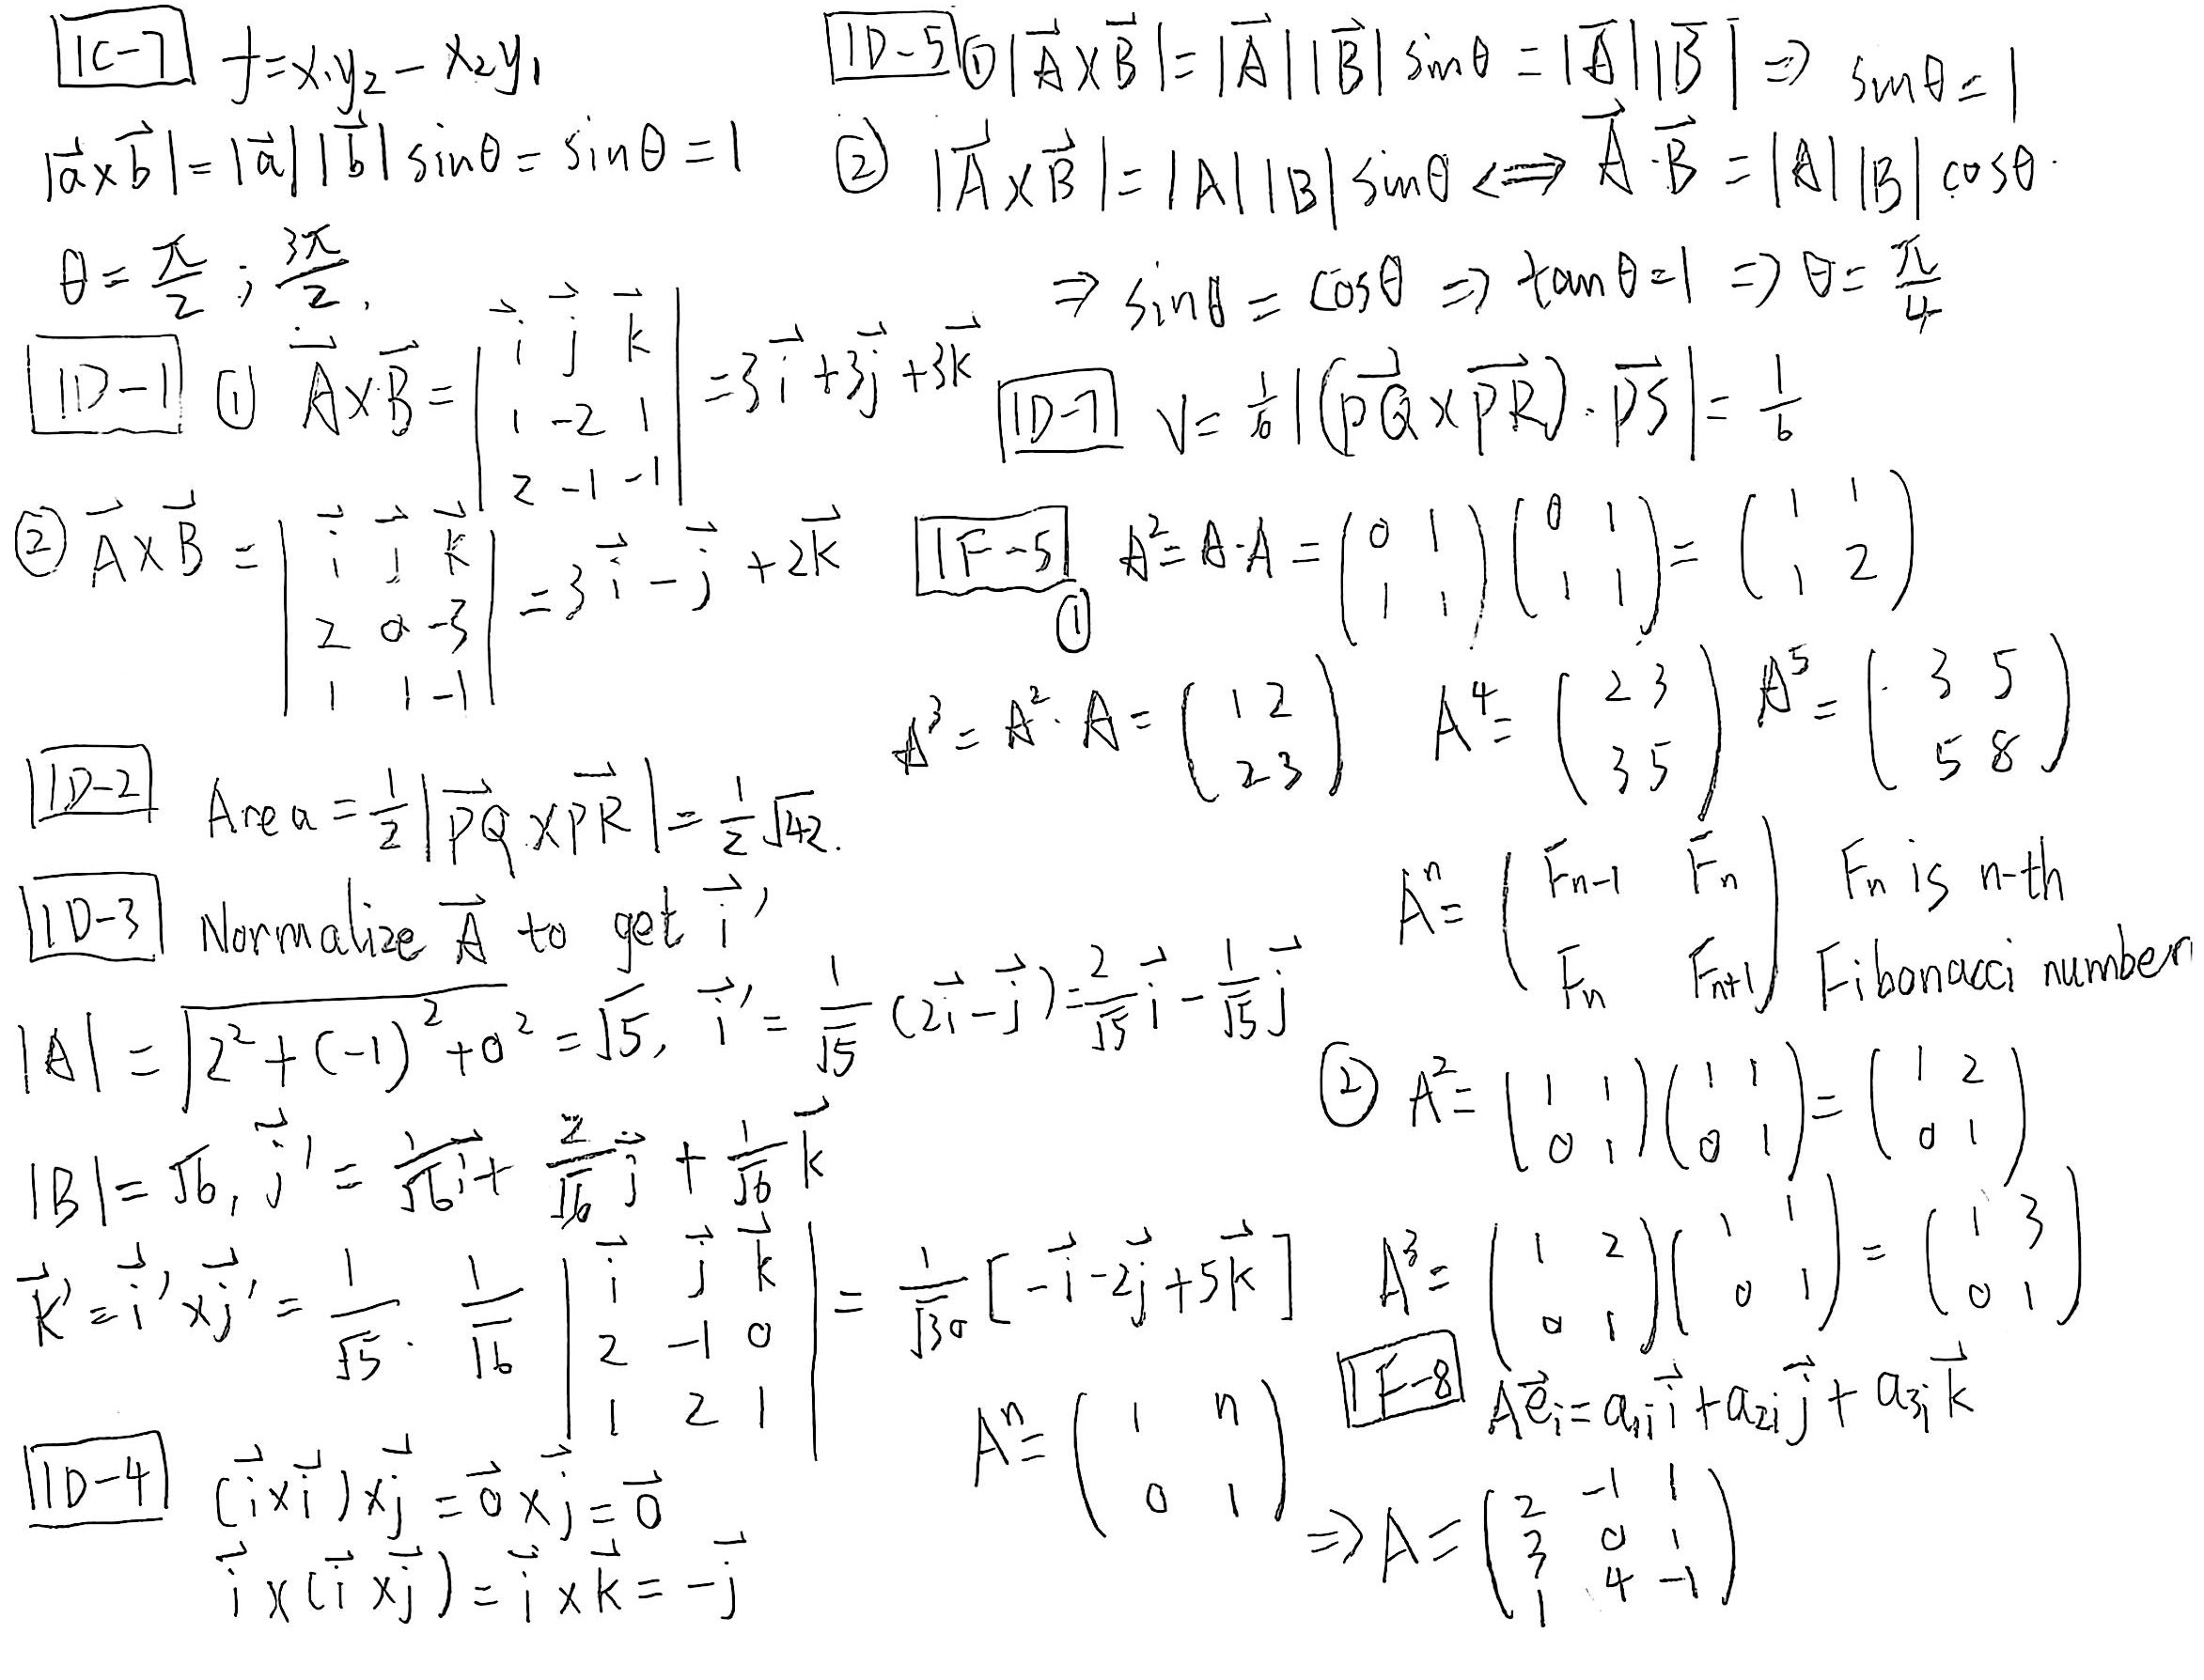 1C-7 f = x₁y₂ - x₂y₁
|a⃗×b⃗| = |a⃗| |b⃗| sinθ = sinθ = 1
θ = π/2 ; 3π/2.
1D-1 ① A⃗×B⃗ = | i⃗ j⃗ k⃗ ; 1 -2 1 ; 2 -1 -1 | = 3i⃗ + 3j⃗ + 3k⃗
② A⃗×B⃗ = | i⃗ j⃗ k⃗ ; 2 0 -3 ; 1 1 -1 | = 3i⃗ - j⃗ + 2k⃗
1D-2 Area = 1/2 |PQ⃗ × PR⃗| = 1/2 √42.
1D-3 Normalize A⃗ to get i⃗'
|A| = √(2² + (-1)² + 0²) = √5, i⃗' = 1/√5 (2i⃗ - j⃗) = 2/√5 i⃗ - 1/√5 j⃗
|B| = √6, j⃗' = 1/√6 i⃗ + 2/√6 j⃗ + 1/√6 k⃗
k⃗' = i⃗' × j⃗' = 1/√5 · 1/√6 | i⃗ j⃗ k⃗ ; 2 -1 0 ; 1 2 1 | = 1/√30 [-i⃗ - 2j⃗ + 5k⃗]
1D-4 (i⃗×i⃗)×j⃗ = 0⃗ × j⃗ = 0⃗
i⃗×(i⃗×j⃗) = i⃗×k⃗ = -j⃗
1D-5 ① |A⃗×B⃗| = |A⃗| |B⃗| sinθ = |A⃗| |B⃗| ⇒ sinθ = 1
② |A⃗×B⃗| = |A| |B| sinθ ⇔ A⃗·B⃗ = |A| |B| cosθ.
⇒ sinθ = cosθ ⇒ tanθ = 1 ⇒ θ = π/4
1D-7 V = 1/6 |(PQ⃗ × PR⃗) · PS⃗| = 1/6
1F-5 ① A² = A·A = (0 1 ; 1 1)(0 1 ; 1 1) = (1 1 ; 1 2)
A³ = A²·A = (1 2 ; 2 3) A⁴ = (2 3 ; 3 5) A⁵ = (3 5 ; 5 8)
Aⁿ = (Fn-1 Fn ; Fn Fn+1) Fn is n-th
Fibonacci number
② A² = (1 1 ; 0 1)(1 1 ; 0 1) = (1 2 ; 0 1)
A³ = (1 2 ; 0 1)(1 1 ; 0 1) = (1 3 ; 0 1)
Aⁿ = (1 n ; 0 1)
1F-8 Ae⃗ᵢ = a₁ᵢ i⃗ + a₂ᵢ j⃗ + a₃ᵢ k⃗
⇒ A = (2 -1 1 ; 3 0 1 ; 1 4 -1)